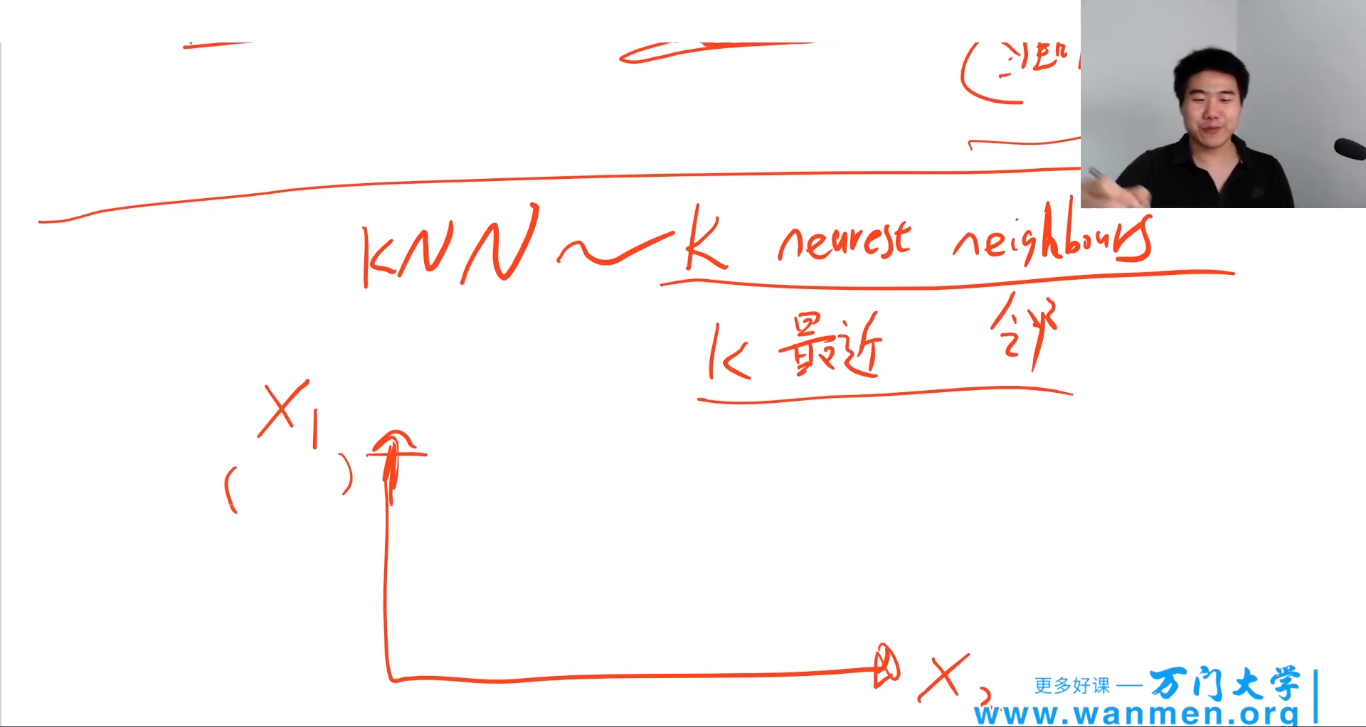 KNN ~ K nearest neighbours
K 最近 邻
X1
( )
X2
更多好课 — 万门大学
www.wanmen.org